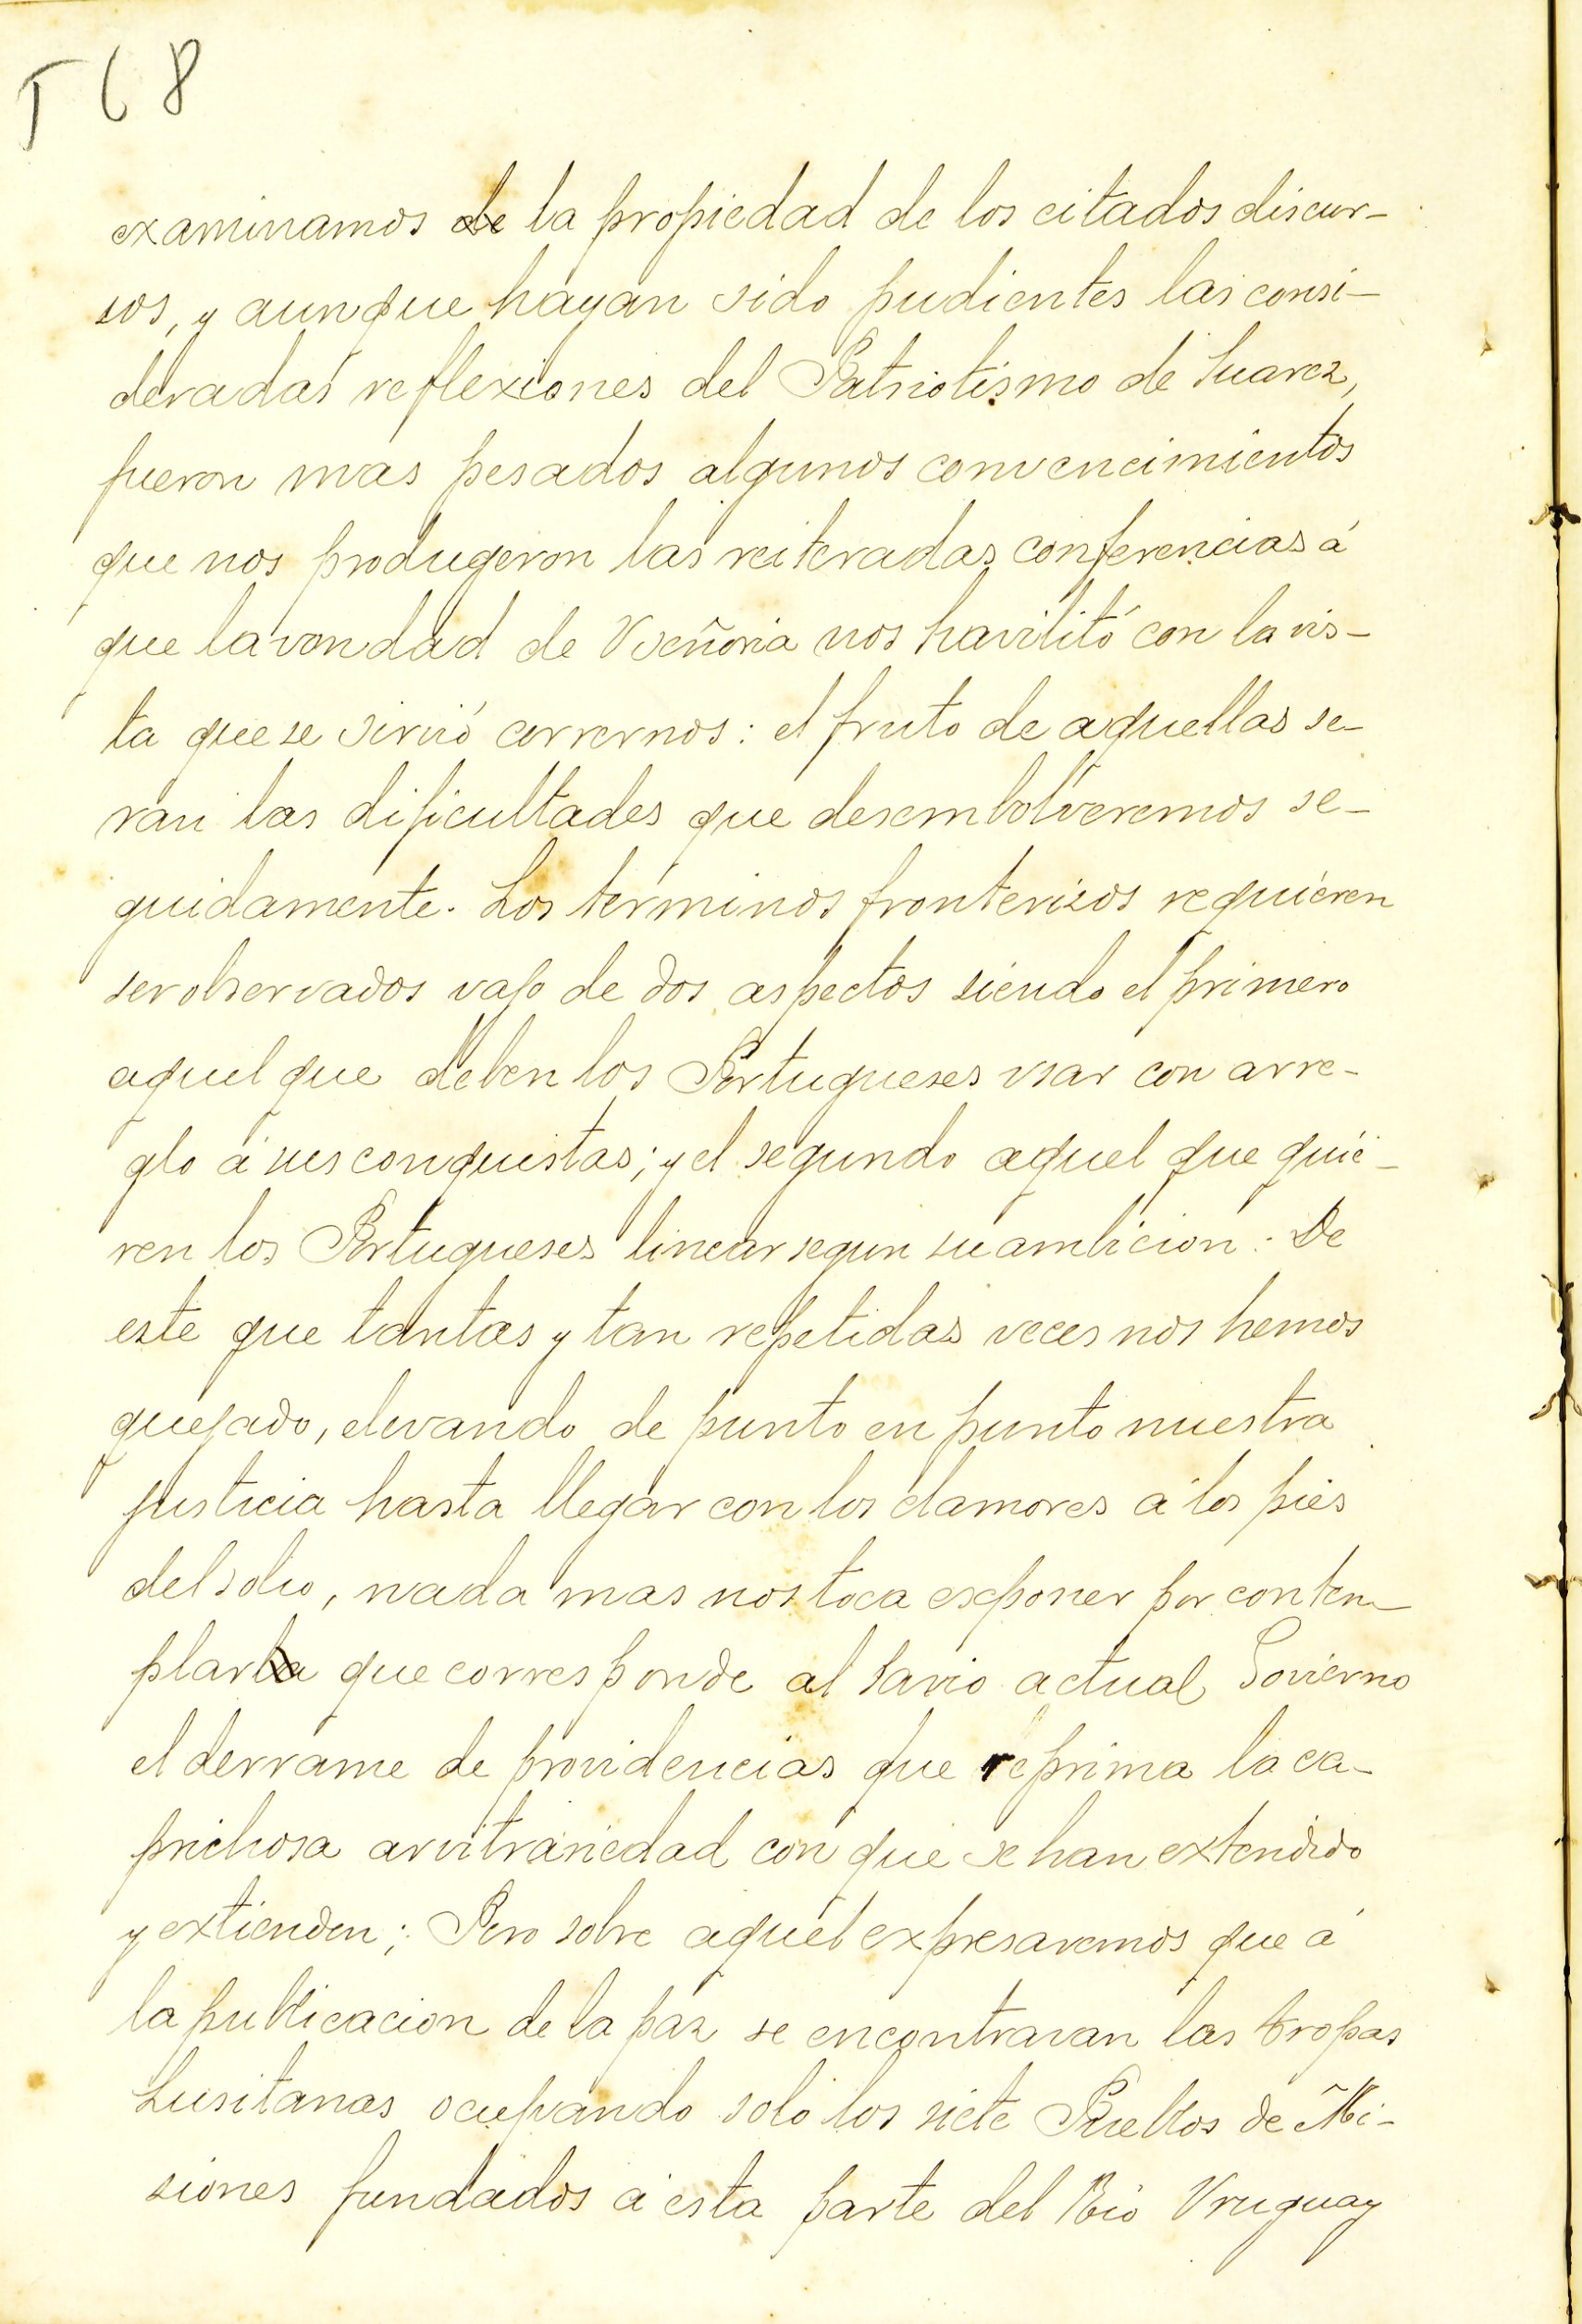 T 6 8
examinamos de la propiedad de los citados discur-
sos, y aunque hayan sido pudientes las consi-
deradas reflexiones del Patriotismo de Suarez,
fueron mas pesados algunos convencimientos
que nos produgeron las reiteradas conferencias á
que la vondad de Vseñoria nos havilitó con la vis-
ta que se sirvió corrernos: el fruto de aquellas se-
ran las dificultades que desembolveremos se-
guidamente. Los términos fronterisos requieren
ser observados vajo de dos aspectos siendo el primero
aquel que deben los Portugueses usar con arre-
glo á sus conquistas; y el segundo aquel que quie-
ren los Portugueses linear segun su ambicion. De
este que tantas y tan repetidas veces nos hemos
quejado, elevando de punto en punto nuestra
justicia hasta llegar con los clamores á los pies
del solio, nada mas nos toca exponer por contem-
plarla que corresponde al savio actual Govierno
el derrame de providencias que reprima la ca-
prichosa arvitrariedad con que se han extendido
y extienden; Pero sobre aquel expresaremos que á
la publicacion de la paz se encontravan las tropas
Lusitanas ocupando solo los siete Pueblos de Mi-
siones fundados á esta parte del Rio Vruguay